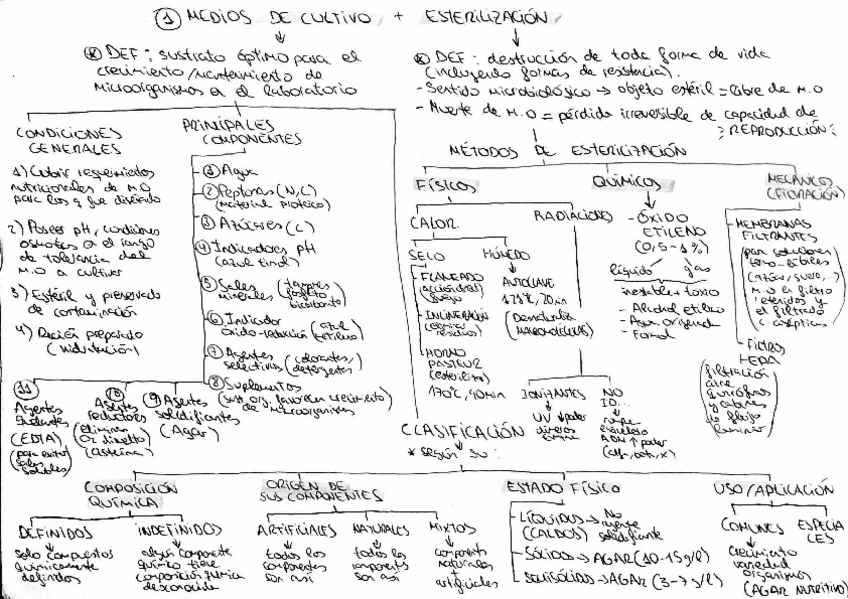 ① MEDIOS DE CULTIVO + ESTERILIZACIÓN
DEF: sustrato óptimo para el
crecimiento/mantenimiento de
microorganismos en el laboratorio
DEF: destrucción de toda forma de vida
(incluyendo formas de resistencia).
- Sentido microbiológico → objeto estéril = libre de M.O
- Muerte de M.O = pérdida irreversible de capacidad de
REPRODUCCIÓN
CONDICIONES
GENERALES
1) Cubrir requerimientos
nutricionales de M.O
para los q fue diseñado
2) Poseer pH, condiciones
osmóticas en el rango
de tolerancia del
M.O a cultivar
3) Estéril y preservado
de contaminación
4) Recién preparado
(hidratación)
PRINCIPALES
COMPONENTES
① Agua
② Peptonas (N,C)
(material proteico)
③ Azúcares (C)
④ Indicadores pH
(azul timol)
⑤ Sales
minerales
(tampones
fosfato
bicarbonato)
⑥ Indicador
óxido-reducción
(azul
metileno)
⑦ Agentes
selectivos
(colorantes,
detergentes)
⑧ Suplementos
(sust. org. favorecen crecimiento)
de microorganismos
⑨ Agentes
solidificantes
(Agar)
⑩ Agentes
reductores
(eliminan
O2 disuelto)
(cisteína)
⑪
Agentes
(EDTA)
(para evitar
sales
MÉTODOS DE ESTERILIZACIÓN
FÍSICOS
QUÍMICOS
MECÁNICOS
(FILTRACIÓN)
CALOR
RADIACIONES
SECO
HÚMEDO
- FLAMEADO
fuego
- INCINERACIÓN
residuos
- HORNO
PASTEUR
170ºC, 90min
AUTOCLAVE
20min
(Desnaturaliza
MACROMOLÉCULAS)
IONIZANTES
NO
IO...
UV ↓ poder
- ÓXIDO
ETILENO
(0,5-1%)
líquido
gas
inestable + tóxico
- Alcohol etílico
- Agua oxigenada
- Formol
- MEMBRANAS
FILTRANTES
(para soluciones
termo-lábiles
M.O en filtro
retenidos y
el filtrado
- Filtros
HEPA
filtración
aire
quirófanos
y cabinas
de flujo
laminar
CLASIFICACIÓN
* según su:
COMPOSICIÓN
QUÍMICA
ORIGEN DE
SUS COMPONENTES
ESTADO FÍSICO
USO/APLICACIÓN
DEFINIDOS
solo compuestos
químicamente
definidos
INDEFINIDOS
algún componente
químico tiene
composición química
desconocida
ARTIFICIALES
todos los
componentes
son así
NATURALES
todos los
componentes
son así
MIXTOS
components
naturales
+
artificiales
- LÍQUIDOS → No
(CALDOS) agente
solidificante
- SÓLIDOS → AGAR (10-15g/l)
- SEMISÓLIDOS → AGAR (3-7 g/l)
COMUNES
crecimiento
variedad
organismos
(AGAR NUTRITIVO)
ESPECIA
LES